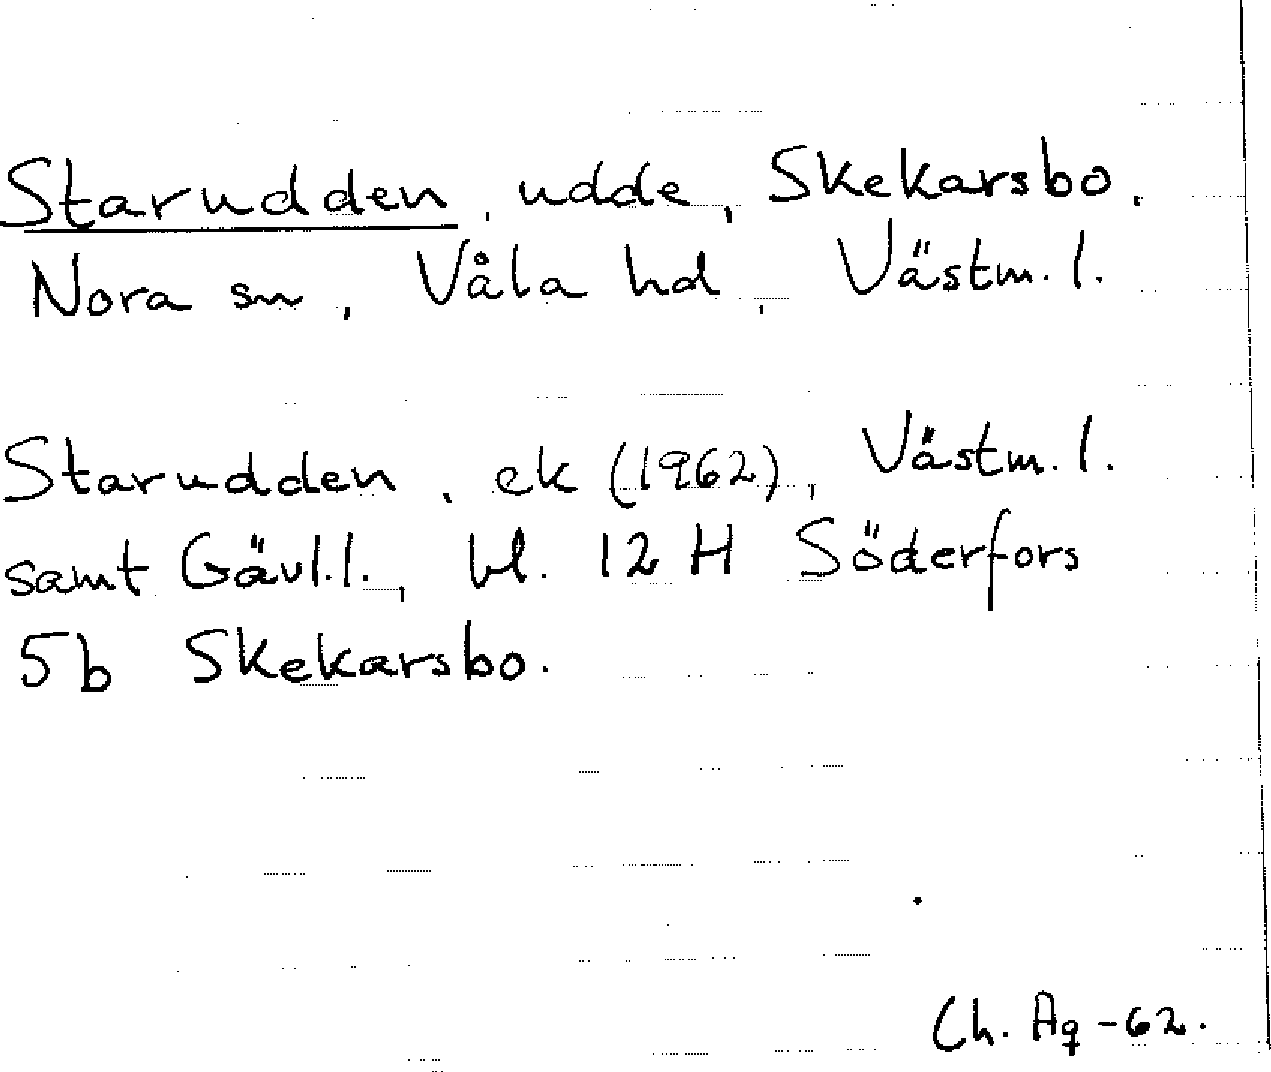 Starudden, udde, Skekarsbo,
Nora sn, Våla hd, Västm. l.
Starudden, ek (1962), Västm. l.
samt Gävl. l., bl. 12 H Söderfors
5b Skekarsbo.
Ch. Ag -62.